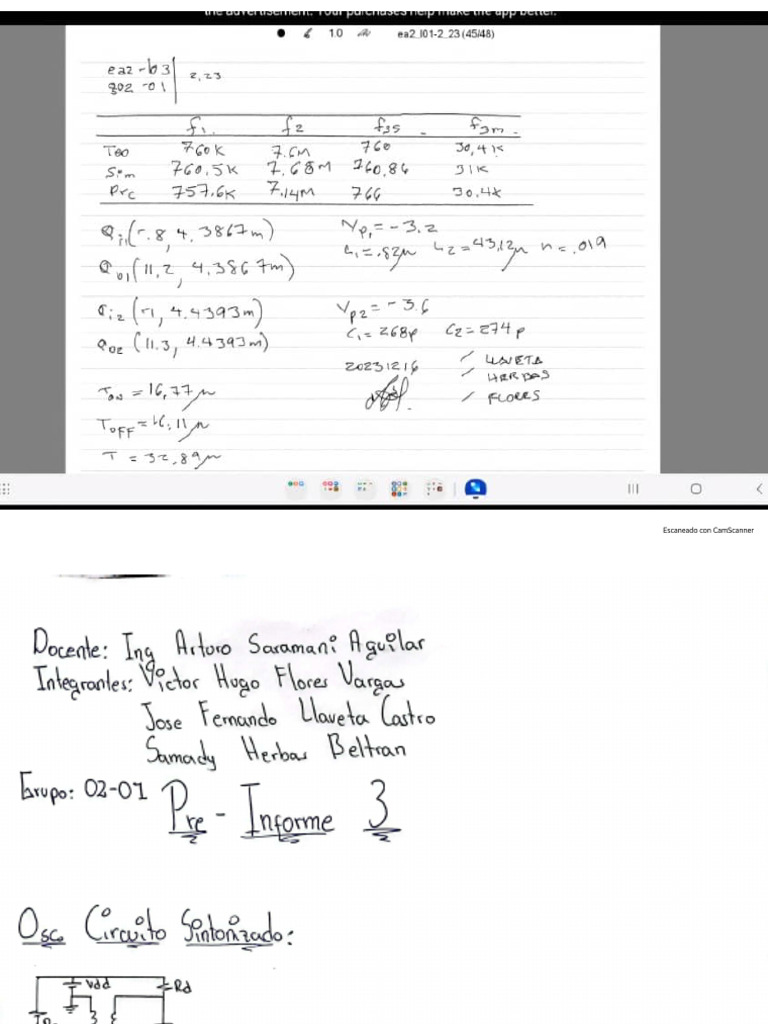 the advertisement. Your purchases help make the app better.
1.0 ea2_l01-2_23 (45/48)
ea2-b3
g02-01 2,23
f1 f2 f3s f3m
Teo 760K 7.6M 760 30,4K
Sim 760,5K 7,68M 760,86 31K
Prc 757.6K 7.14M 766 30.4K
Qi1(-.8, 4.3867m) Vp1=-3.2
L1=.82μ L2=43,12μ n=.019
Qo1(11,2, 4,3867m)
Qi2(-1, 4.4393m) Vp2=-3.6
C1=268p C2=274p
Qo2(11.3, 4.4393m)
20231216
LLAVETA
HERBAS
FLORES
TON=16,77μ
TOFF=16,11μ
T=32,89μ
Escaneado con CamScanner
Docente: Ing Arturo Saramani Aguilar
Integrantes: Victor Hugo Flores Vargas
Jose Fernando Llaveta Castro
Samady Herbas Beltran
Grupo: 02-01
Pre-Informe 3
Osc Circuito Sintonizado:
Vdd Rd